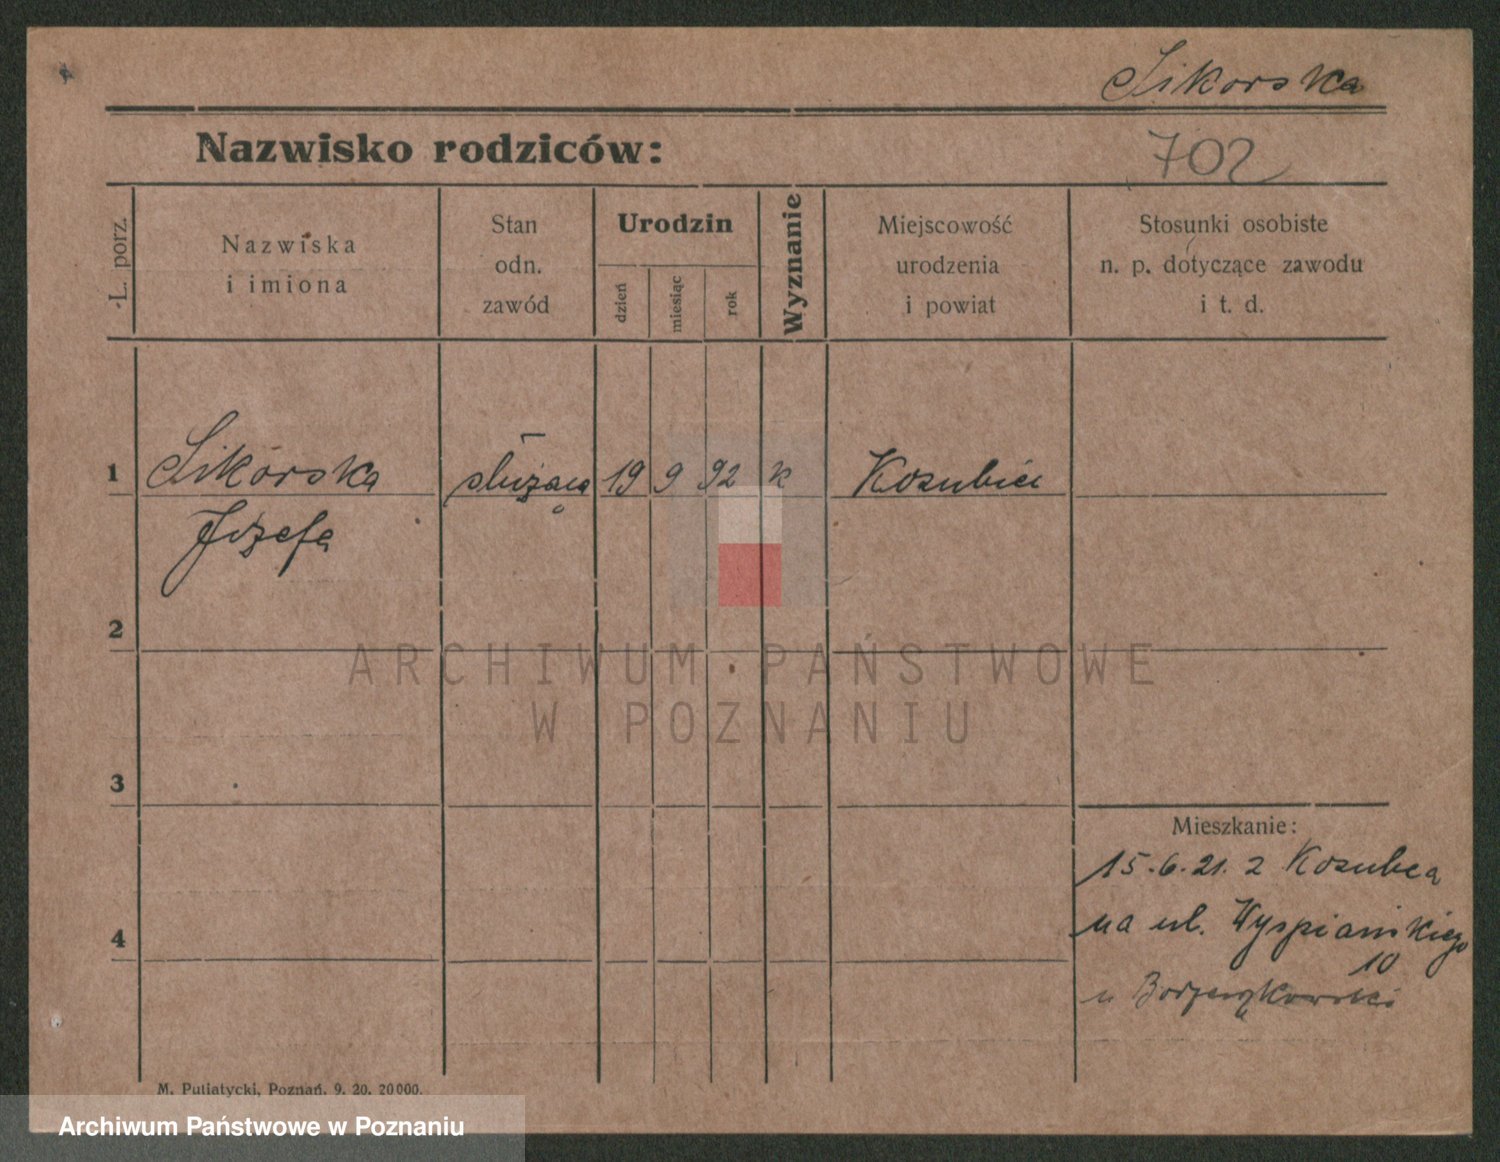 Sikorska
Nazwisko rodziców:
702
L. porz.
Nazwiska
i imiona
Stan
odn.
zawód
Urodzin
dzień
miesiąc
rok
Wyznanie
Miejscowość
urodzenia
i powiat
Stosunki osobiste
n. p. dotyczące zawodu
i t. d.
1 Sikorska służąca 19 9 92 k
Józefa
2
ARCHIWUM PAŃSTWOWE
W POZNANIU
3
Mieszkanie:
15.6.21. z Kozubca
na ul. Wyspiańskiego
10
4
u
M. Putiatycki, Poznań. 9. 20. 20000.
Archiwum Państwowe w Poznaniu